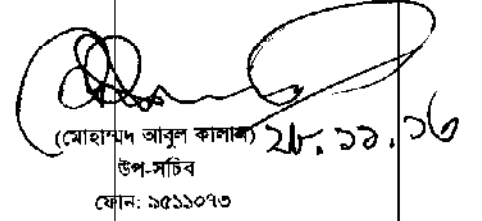 (মোহাম্মদ আবুল কালাম) ২৮.১১.১৬
উপ-সচিব
ফোন: ৯৫১১০৭৩